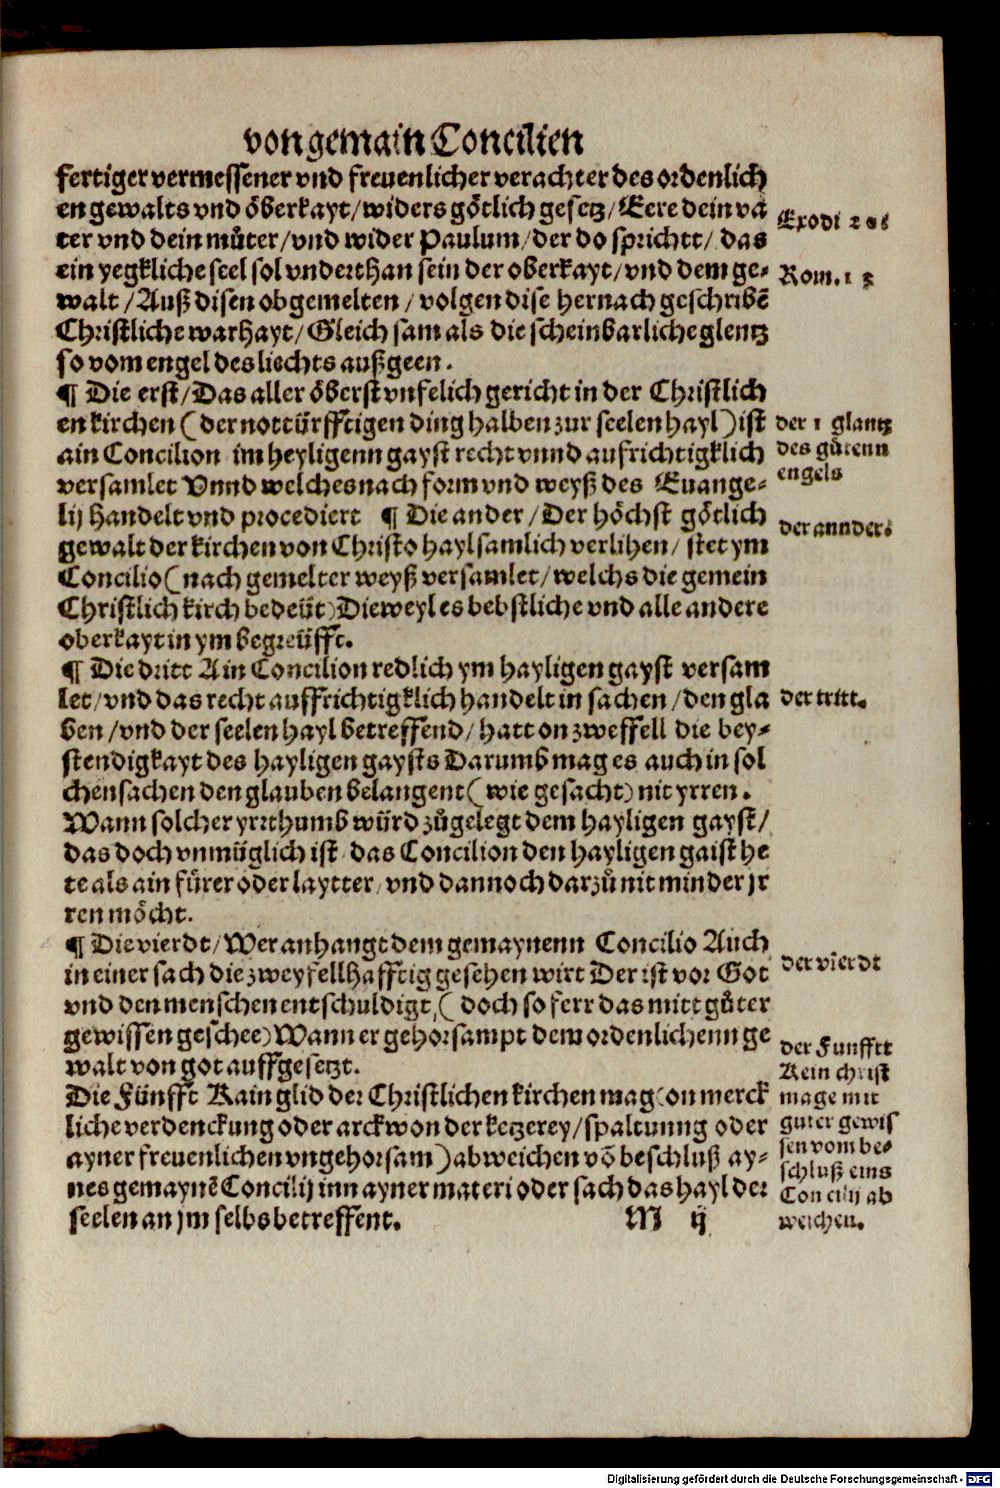 von gemain Concilien
fertiger vermessener vnd freuenlicher verachter des ordenlich
en gewalts vnd öberkayt/widers götlich gesetz/Eere dein va
ter vnd dein můter/vnd wider Paulum/der do sprichtt/das
ein yegkliche seel sol vnderthan sein der oberkayt/vnd dem ge-
walt/Auß disen obgemelten/volgen dise hernach geschribē
Christliche warhayt/Gleich sam als die scheinbarliche glentz
so vom engel des liechts außgeen.
¶ Die erst/Das aller öberst vnfelich gericht in der Christlich
en kirchen (der nottürfftigen ding halben zur seelen hayl) ist
ain Concilion im heyligenn gayst recht vnnd aufrichtigklich
versamlet Vnnd welches nach form vnd weyß des Euange-
lij handelt vnd procediert ¶ Die ander/Der höchst götlich
gewalt der kirchen von Christo haylsamlich verlihen/stet ym
Concilio (nach gemelter weyß versamlet/welchs die gemein
Christlich kirch bedeüt) Dieweyl es bebstliche vnd alle andere
oberkayt in ym begreüfft.
¶ Die dritt Ain Concilion redlich ym hayligen gayst versam
let/vnd das recht auffrichtigklich handelt in sachen/den gla
ben/vnd der seelen hayl betreffend/hatt on zweffell die bey-
stendigkayt des hayligen gaysts Darumb mag es auch in sol
chen sachen den glauben belangent (wie gesacht) nit yrren.
Wann solcher yrrthumb würd zůgelegt dem hayligen gayst/
das doch vnmüglich ist das Concilion den hayligen gaist he
te als ain fürer oder laytter/vnd dannoch darzů nit minder jr
ren möcht.
¶ Die vierdt/Wer anhangt dem gemaynenn Concilio Auch
in einer sach die zweyfellhafftig gesehen wirt Der ist vor Got
vnd den menschen entschuldigt (doch so ferr das mitt gůter
gewissen geschee) Wann er gehorsampt dem ordenlichenn ge
walt von got auffgesetzt.
Die Fünfft Kain glid der Christlichen kirchen mag (on merck
liche verdenckung oder arckwon der ketzerey/spaltunng oder
ayner freuenlichen vngehorsam) abweichen võ beschluß ay-
nes gemaynē Concilij inn ayner materi oder sach das hayl der
seelen an jm selbs betreffent.
M ij
Exodi
Rom. 1 3
der 1 glantz
des gůtenn
engels
der annder.
der tritt.
der vierdt
der Funfftt
Kein christ
mage mit
guter gewis
sen vom be-
schluß eins
Concilij ab
weichen.
Digitalisierung gefördert durch die Deutsche Forschungsgemeinschaft - DFG